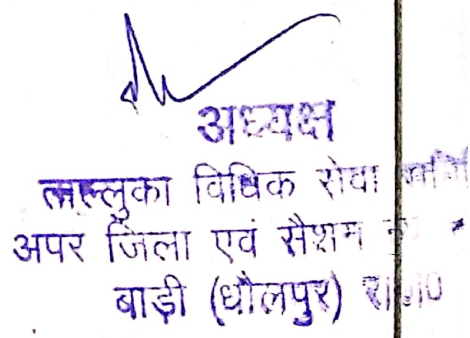 अध्यक्ष
ताल्लुका विधिक सेवा
अपर जिला एवं सैशन
बाड़ी (धौलपुर) राज०